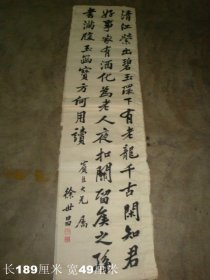 清江縈出碧玉環下有老龍千古閑知君
好事家有酒化為老人夜扣關留矦之孫
書滿腹玉函寶方何用讀
大兄屬
徐世昌
长189厘米 宽49厘米